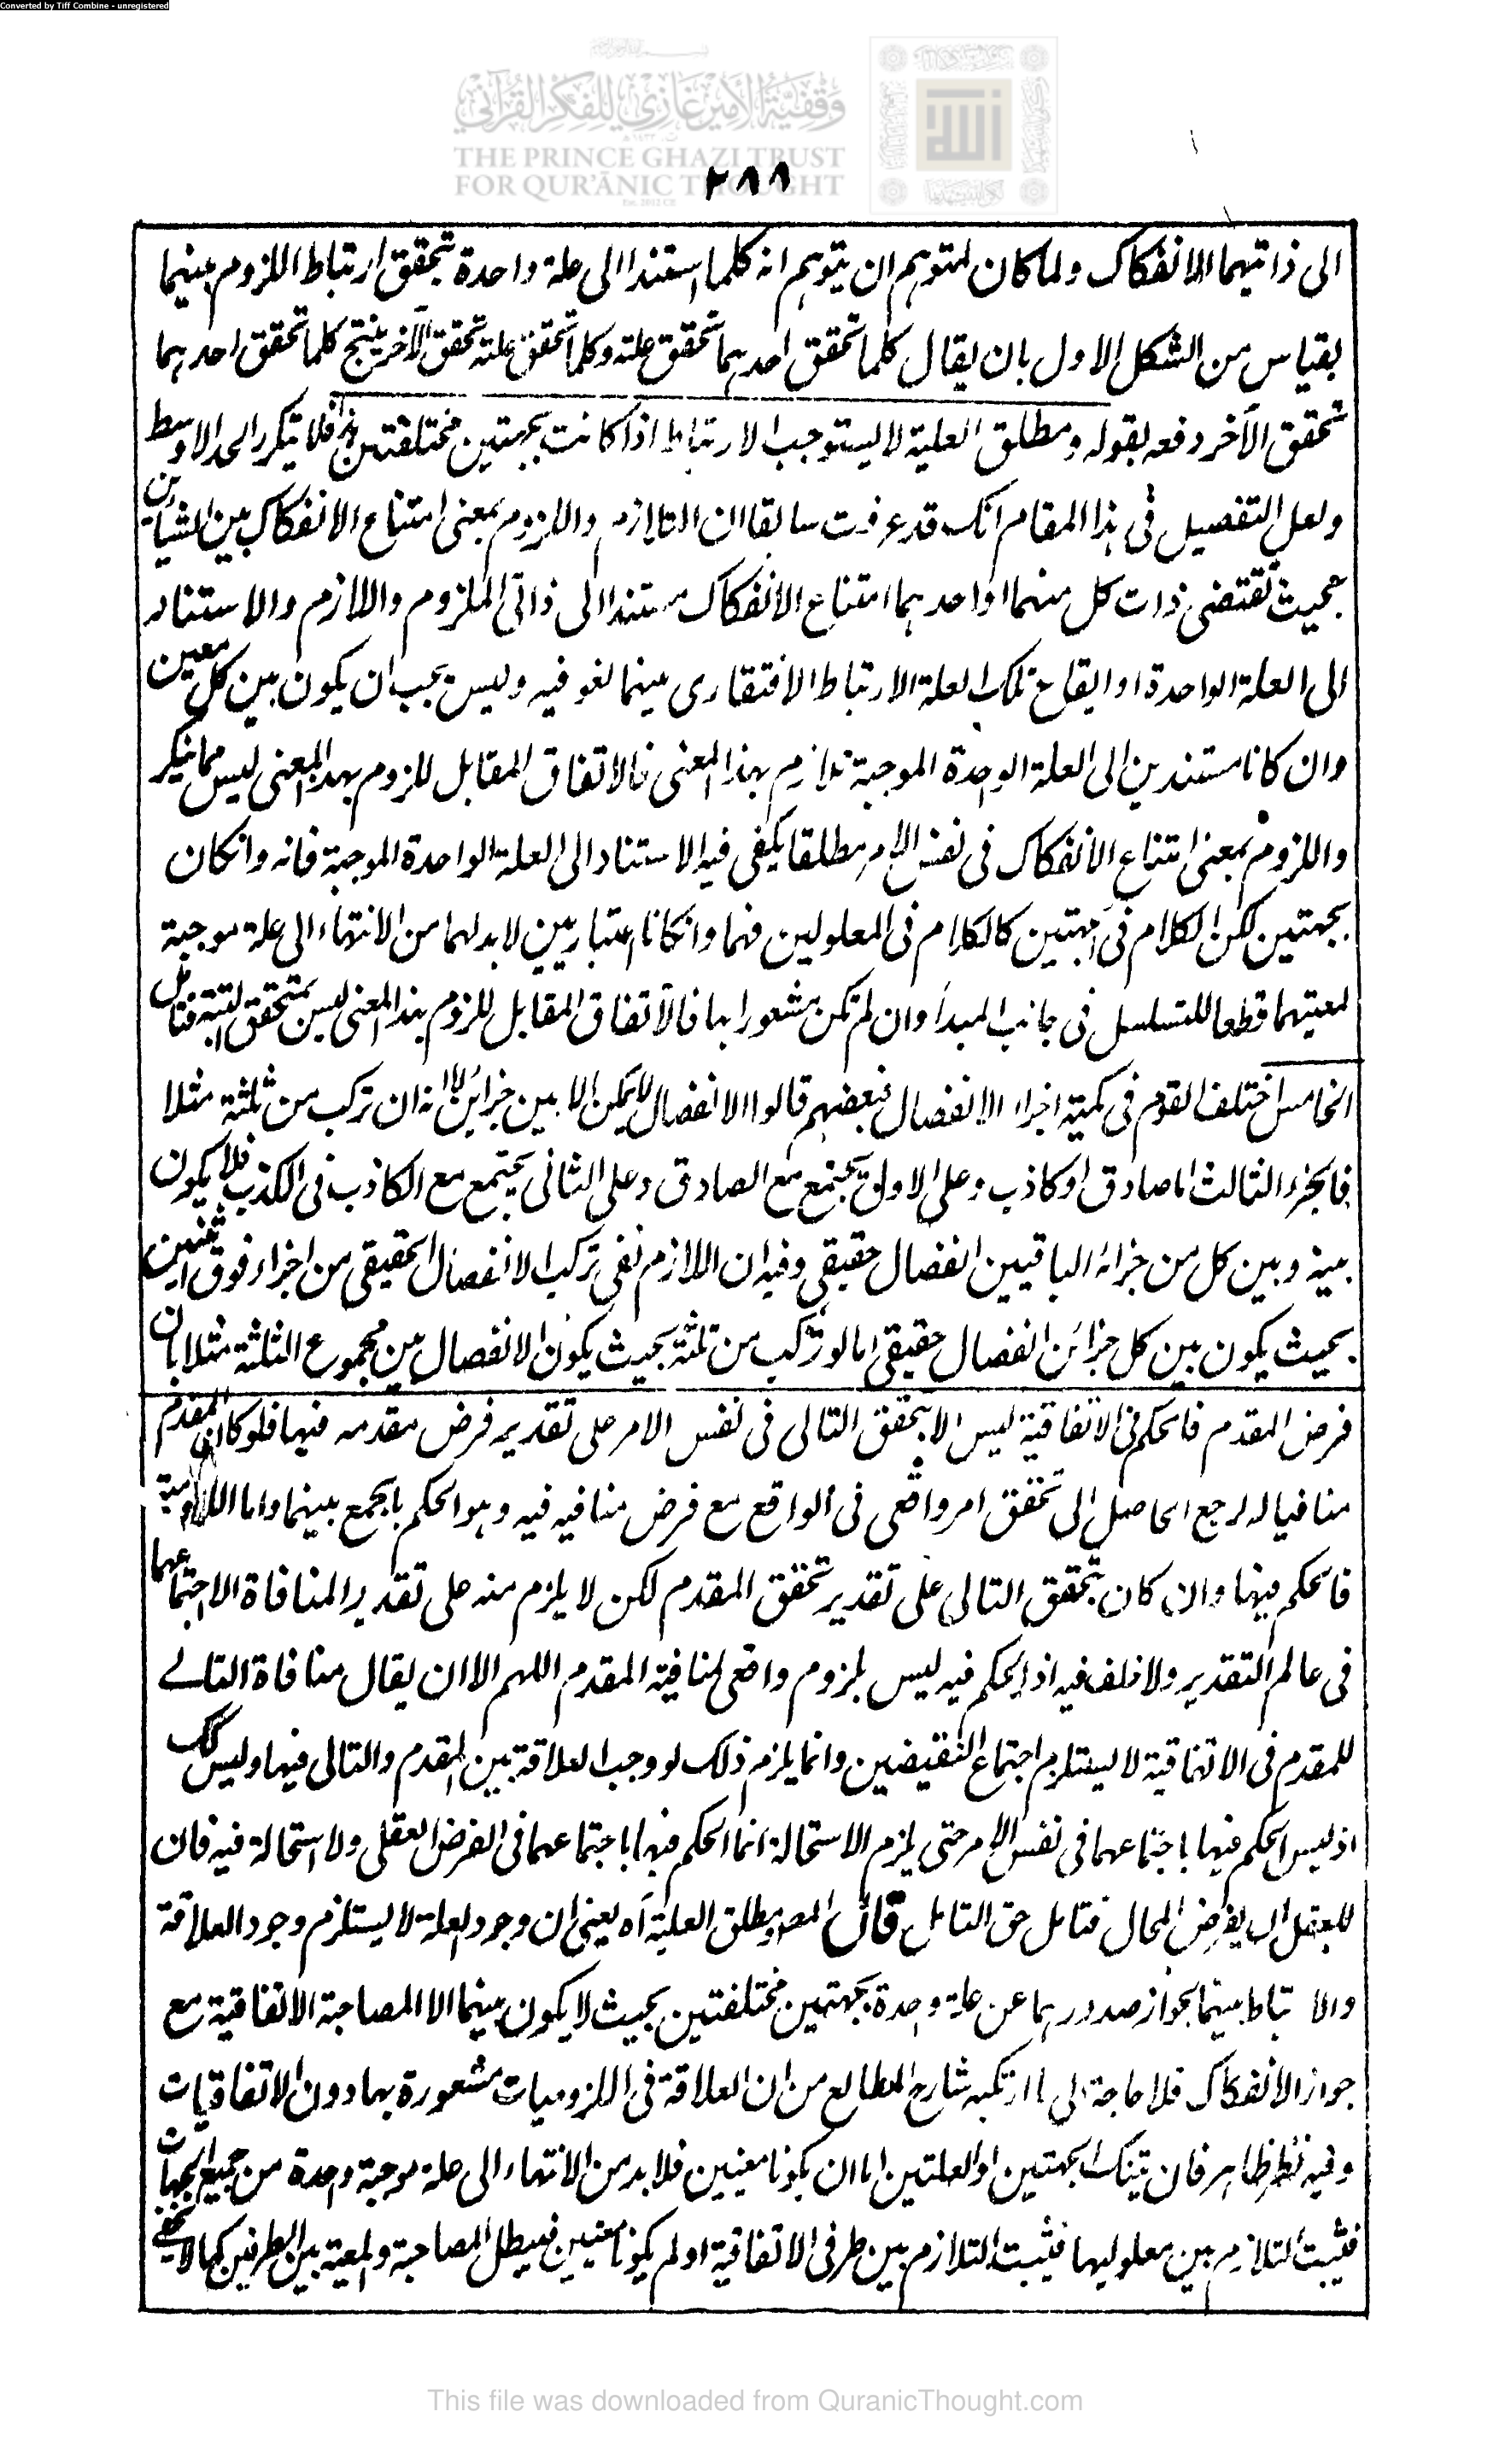 Converted by Tiff Combine - unregistered
وقفية الأمير غازي للفكر القرآني
THE PRINCE GHAZI TRUST
FOR QUR'ĀNIC THOUGHT
٢٨٨
الى ذاتيهما الانفكاك ولما كان لمتوهم ان يتوهم انه كلما استندا الى علة واحدة تحقق ارتباط اللزوم بينهما
بقياس من الشكل الاول بان يقال كلما تحقق احدهما تحقق علته وكلما تحقق علته تحقق الآخر ينتج كلما تحقق احدهما
تحقق الآخر دفعه بقوله ومطلق العلية لا يستوجب الارتباط اذا كانت بجهتين مختلفتين فلا يتكرر الحد الاوسط
ولعل التفصيل في هذا المقام انك قد عرفت سابقا ان التلازم واللزوم بمعنى امتناع الانفكاك بين الشيئين
بحيث تقتضى ذات كل منهما او احدهما امتناع الانفكاك مستندا الى ذاتي الملزوم واللازم والاستناد
الى العلة الواحدة او ايقاع تلك العلة الارتباط الافتقارى بينهما لغو فيه وليس يجب ان يكون بين كل معين
وان كانا مستندين الى العلة الواحدة الموجبة تلازم بهذا المعنى فالاتفاق المقابل للزوم بهذا المعنى ليس مما ينكر
واللزوم بمعنى امتناع الانفكاك في نفس الامر مطلقا يكفى فيه الاستناد الى العلة الواحدة الموجبة فانه وانكان
بجهتين لكن الكلام في الجهتين كالكلام في المعلولين فهما وانكانا اعتباريين لابد لهما من الانتهاء الى علة موجبة
لمعيتهما قطعا للتسلسل في جانب المبدأ وان لم تكن مشعورا بها فالاتفاق المقابل للزوم بهذا المعنى ليس بمتحقق البتة فتامل
الخامس اختلف القوم في كمية اجزاء الانفصال فبعضهم قالوا الانفصال لا يمكن الا بين جزأين لانه ان تركب من ثلثة مثلا
فالجزء الثالث اما صادق او كاذب وعلى الاول يجتمع مع الصادق وعلى الثاني يجتمع مع الكاذب في الكذب فلا يكون
بينه وبين كل من جزأيه الباقيين انفصال حقيقي وفيه ان اللازم نفي تركب الانفصال الحقيقي من اجزاء فوق اثنين
بحيث يكون بين كل جزأين انفصال حقيقي اما لو تركب من ثلثة بحيث يكون الانفصال بين مجموع الثلثة مثلا بان
فرض المقدم فالحكم في الاتفاقية ليس الا بتحقق التالى فى نفس الامر على تقدير فرض مقدمه فيها فلو كان المقدم
منافيا له لرجع الحاصل الى تحقق امر واقعى فى الواقع مع فرض منافيه فيه وهو الحكم بالجمع بينهما واما اللزومية
فالحكم فيها وان كان بتحقق التالى على تقدير تحقق المقدم لكن لا يلزم منه على تقدير المنافاة الا اجتماعهما
فى عالم التقدير ولا خلف فيه اذ الحكم فيه ليس بلزوم واقعى لمنافيه المقدم اللهم الا ان يقال منافاة التالى
للمقدم فى الاتفاقية لا يستلزم اجتماع النقيضين وانما يلزم ذلك لو وجب العلاقة بين المقدم والتالى فيها وليس كك
اذ ليس الحكم فيها باجتماعهما فى نفس الامر حتى يلزم الاستحالة انما الحكم فيها باجتماعهما فى الفرض العقلى ولا استحالة فيه فان
للعقل ان يفرض المحال فتامل حق التامل قال المصـ ومطلق العلية آه يعنى ان وجود العلة لا يستلزم وجود العلاقة
والارتباط بينهما لجواز صدورهما عن علة واحدة بجهتين مختلفتين بحيث لا يكون بينهما الا المصاحبة الاتفاقية مع
جواز الانفكاك فلا حاجة الى ما ارتكبه شارح المطالع من ان العلاقة فى اللزوميات مشعورة بها دون الاتفاقيات
وفيه نظر ظاهر فان تينك الجهتين او العلتين اما ان يكونا معينين فلا بد من الانتهاء الى علة موجبة واحدة من جميع الجهات
فثبت التلازم بين معلوليها فثبت التلازم بين طرفى الاتفاقية او لم يكونا معينين فيبطل المصاحبة والمعية بين الطرفين كما لا يخفى
This file was downloaded from QuranicThought.com